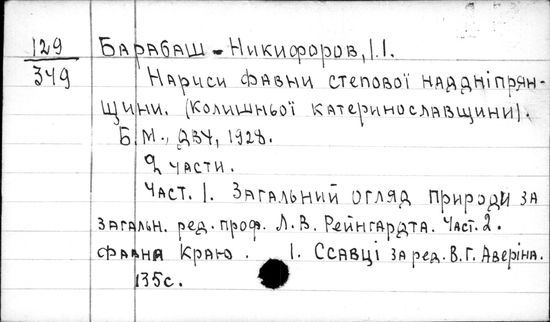 129 Барабаш-Никифоров, І.І.
349 Нариси фавни степової наддніпрян-
щини. (колишньої катеринославщини).
Б.М., ДВУ, 1928.
2 части.
Част. 1. Загальний огляд природи за
загальн. ред. проф. Л.В. Рейнгардта. Част. 2.
фавна краю. 1. Ссавці за ред. В.Г. Аверіна.
135с.